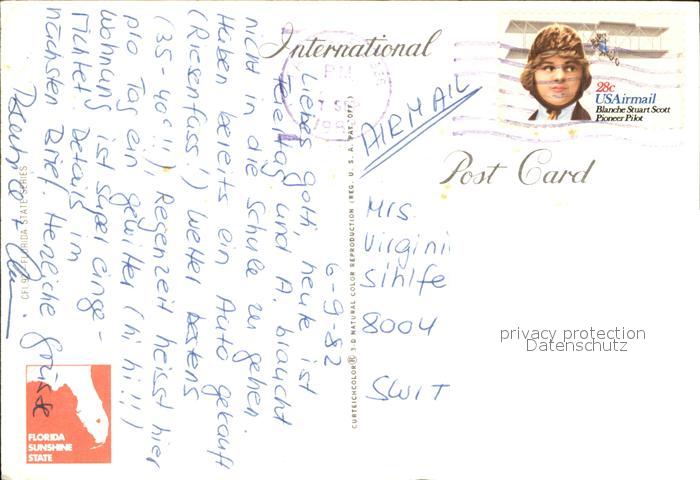 International
Post Card
28c
USAirmail
Blanche Stuart Scott
Pioneer Pilot
PM
AIRMAIL
6-9-82
Liebes Gotti, heute ist
Feiertag und A. braucht
nicht in die Schule zu gehen.
Haben bereits ein Auto gekauft
(Riesenfass!) Wetter bestens
(35-40°!!), Regenzeit heisst hier
pro Tag ein gewitter (hi hi!!)
Wohnung ist super einge-
richtet. Details im
nächsten Brief. Herzliche Grüsse
Mrs.
Virgini
Sihlfe
8004
SWIT
privacy protection
Datenschutz
CURTEICHCOLOR® 3-D NATURAL COLOR REPRODUCTION (REG. U. S. A. PAT. OFF.)
FLORIDA STATE SERIES
FLORIDA
SUNSHINE
STATE